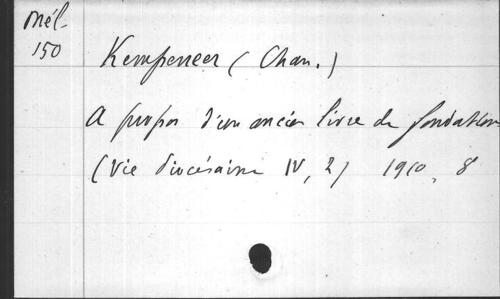 Mél.
150
Kempeneer (Chan.)
A propos d'un ancien livre de fondation
(Vie diocésaine IV, 2) 1910, 8